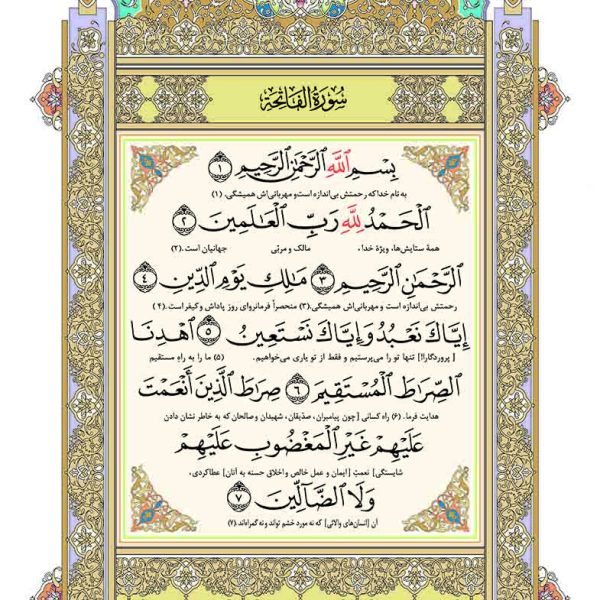 سُورَةُ الفَاتِحَة
بِسْمِ اللَّهِ الرَّحْمَٰنِ الرَّحِيمِ ١
به نام خدا که رحمتش بی‌اندازه است و مهربانی‌اش همیشگی. (۱)
الْحَمْدُ لِلَّهِ رَبِّ الْعَالَمِينَ ٢
همهٔ ستایش‌ها، ویژهٔ خدا، مالک و مربّی جهانیان است. (۲)
الرَّحْمَٰنِ الرَّحِيمِ ٣ مَالِكِ يَوْمِ الدِّينِ ٤
رحمتش بی‌اندازه است و مهربانی‌اش همیشگی. (۳) منحصراً فرمانروای روز پاداش و کیفر است. (۴)
إِيَّاكَ نَعْبُدُ وَإِيَّاكَ نَسْتَعِينُ ٥ اهْدِنَا
[پروردگارا!] تنها تو را می‌پرستیم و فقط از تو یاری می‌خواهیم. (۵) ما را به راهِ مستقیم
الصِّرَاطَ الْمُسْتَقِيمَ ٦ صِرَاطَ الَّذِينَ أَنْعَمْتَ
هدایت فرما. (۶) راه کسانی [چون پیامبران، صدّیقان، شهیدان و صالحان که به خاطر نشان دادن
عَلَيْهِمْ غَيْرِ الْمَغْضُوبِ عَلَيْهِمْ
شایستگی] نعمتِ [ایمان و عمل خالص و اخلاق حسنه به آنان] عطا کردی،
وَلَا الضَّالِّينَ ٧
آن [انسان‌های والائی] که نه مورد خشم تواند و نه گمراه‌اند. (۷)